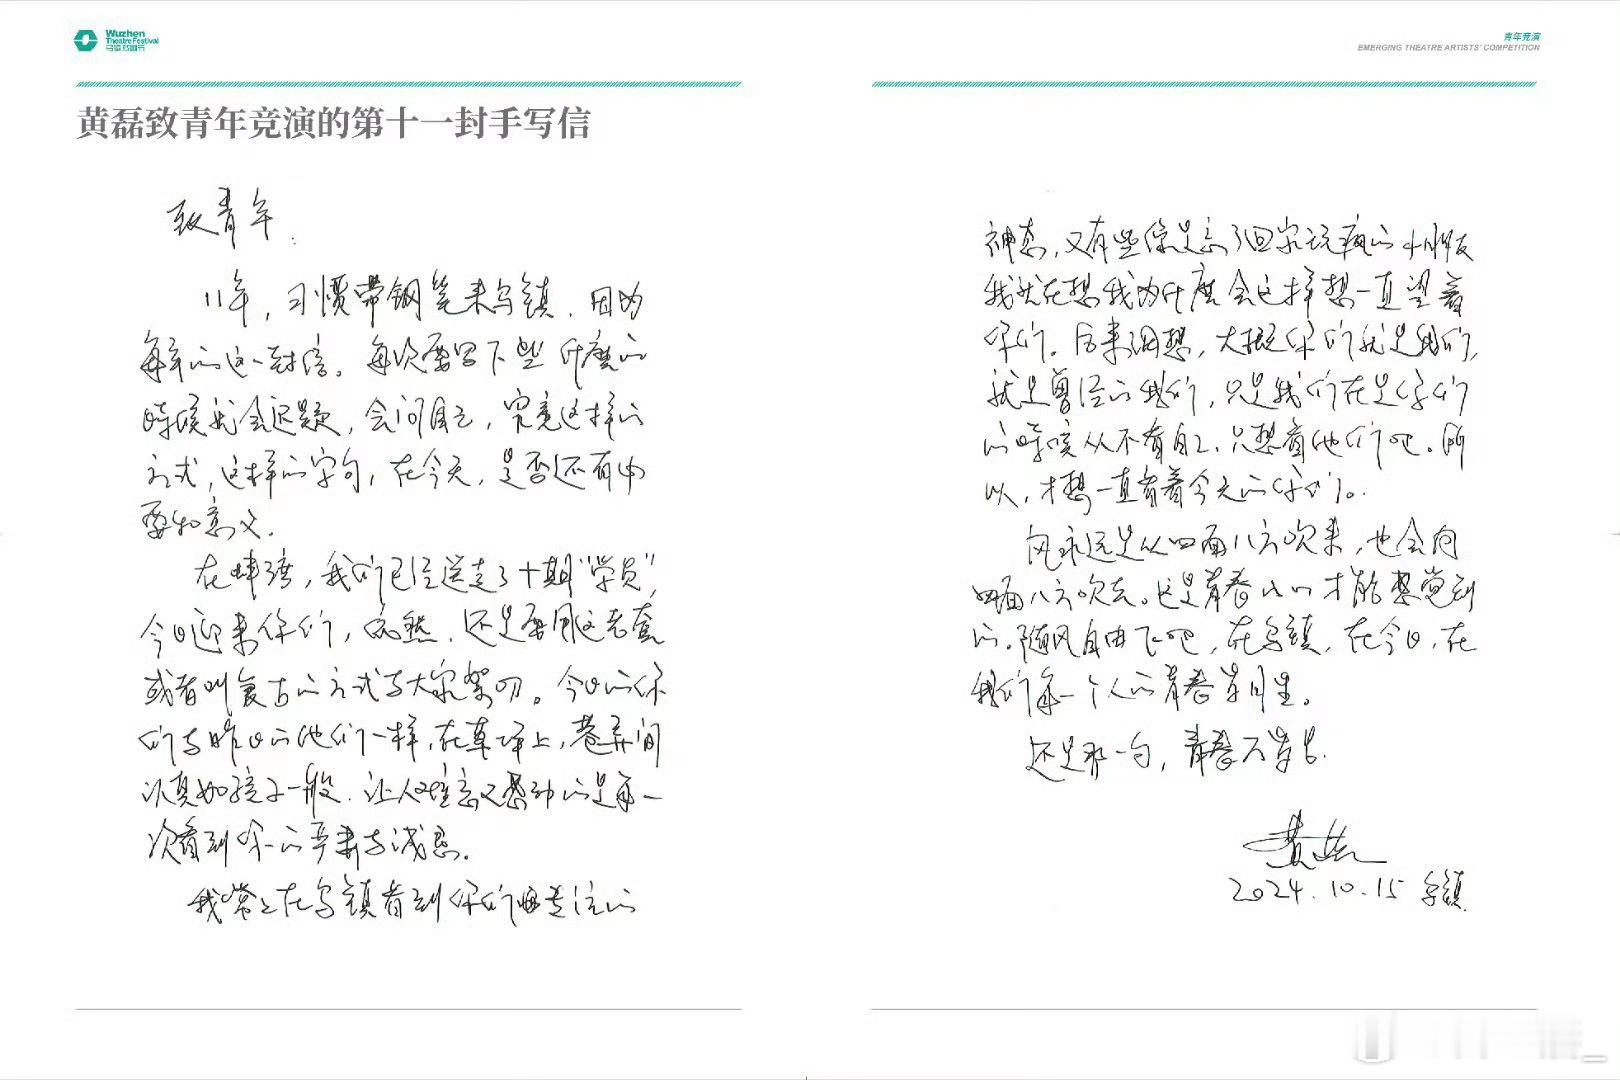 Wuzhen
Theatre Festival
乌镇戏剧节
青年竞演
EMERGING THEATRE ARTISTS' COMPETITION
黄磊致青年竞演的第十一封手写信
致青年:
11年，习惯带钢笔来乌镇，因为
每年的这一封信。每次要写下些什麽的
時候我会迟疑，会问自己，究竟这样的
方式，这样的字句，在今天，是否还有必
要和意义。
在蚌湾，我们已经送走了十期“学员”，
今日迎来你们，依然，还是要用这老套
或者叫复古的方式与大家絮叨。今日的你
们与昨日的他们一样，在草坪上，巷弄间
认真如孩子一般，让人难忘又感动的是每一
次看到你们的严肃与诚恳。
我常常在乌镇看到你们那专注的
神态，又有些像是忘了回家玩疯的小朋友
我就在想我为什麽会这样想一直望着
你们。后来细想，大概你们就是我们，
就是曾经的我们，只是我们在是你们
的時候从不看自己，只想看他们吧。所
以，才想一直看着今天的你们。
风永远是从四面八方吹来，也会向
四面八方吹去。这是青春的人才能感觉到
的。随风自由飞吧，在乌镇，在今日，在
我们每一个人的青春岁月里。
还是那一句，青春万岁！
黄磊
2024.10.15 乌镇